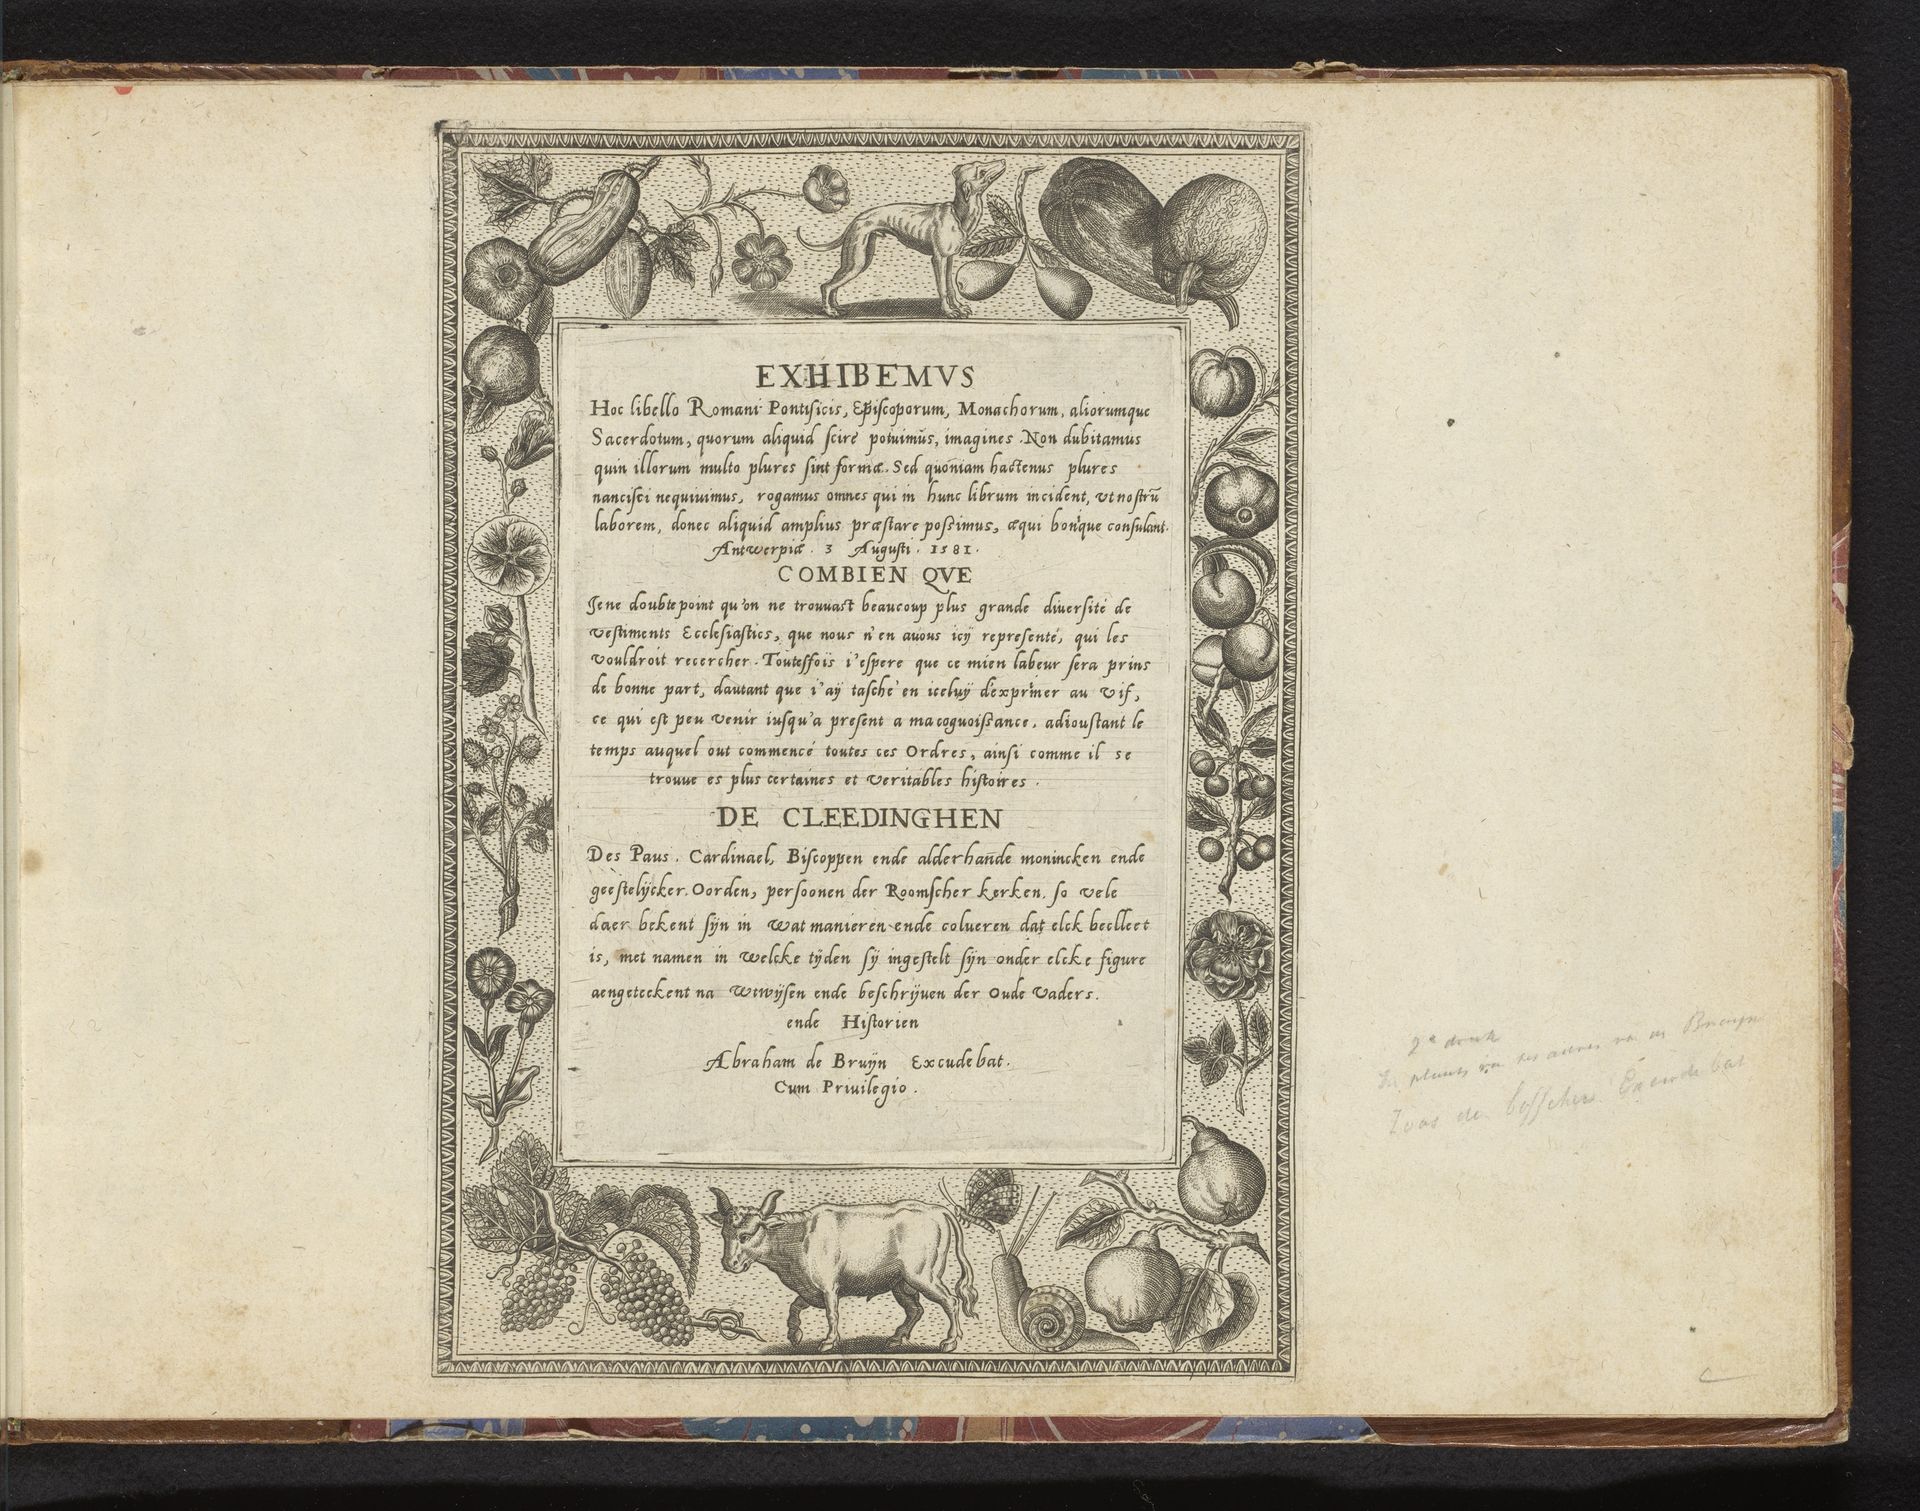 EXHIBEMVS
Hoc libello Romani Pontificis, Episcoporum, Monachorum, aliorumque
Sacerdotum, quorum aliquid scire potuimus, imagines. Non dubitamus
quin illorum multo plures sint formæ. Sed quoniam hactenus plures
nancisci nequiuimus, rogamus omnes qui in hunc librum incident, vt nostrū
laborem, donec aliquid amplius præstare poßimus, æqui bonique consulant.
Antwerpiæ. 3 Augusti. 1581.
COMBIEN QVE
Je ne doubte point qu'on ne trouuast beaucoup plus grande diuersité de
vestiments Ecclesiastics, que nous n'en auōus icÿ representé, qui les
vouldroit recercher. Toutesfois i'espere que ce mien labeur sera prins
de bonne part, dautant que i'aÿ tasché en iceluÿ d'exprimer au vif,
ce qui est peu venir iusqu'a present a ma cognoissance, adioustant le
temps auquel out commencé toutes ces Ordres, ainsi comme il se
trouue es plus certaines et veritables histoires.
DE CLEEDINGHEN
Des Paus. Cardinael, Biscoppen ende alderhande monincken ende
geestelÿcker. Oorden, persoonen der Roomscher kerken. so vele
daer bekent sÿn in wat manieren ende colueren dat elck beclleet
is, met namen in welcke tÿden sÿ ingestelt sÿn onder elcke figure
aengeteekent na wtwÿsen ende beschrÿuen der Oude Vaders.
ende Historien
Abraham de Bruÿn Excudebat.
Cum Priuilegio.
2e druk
Excudebat